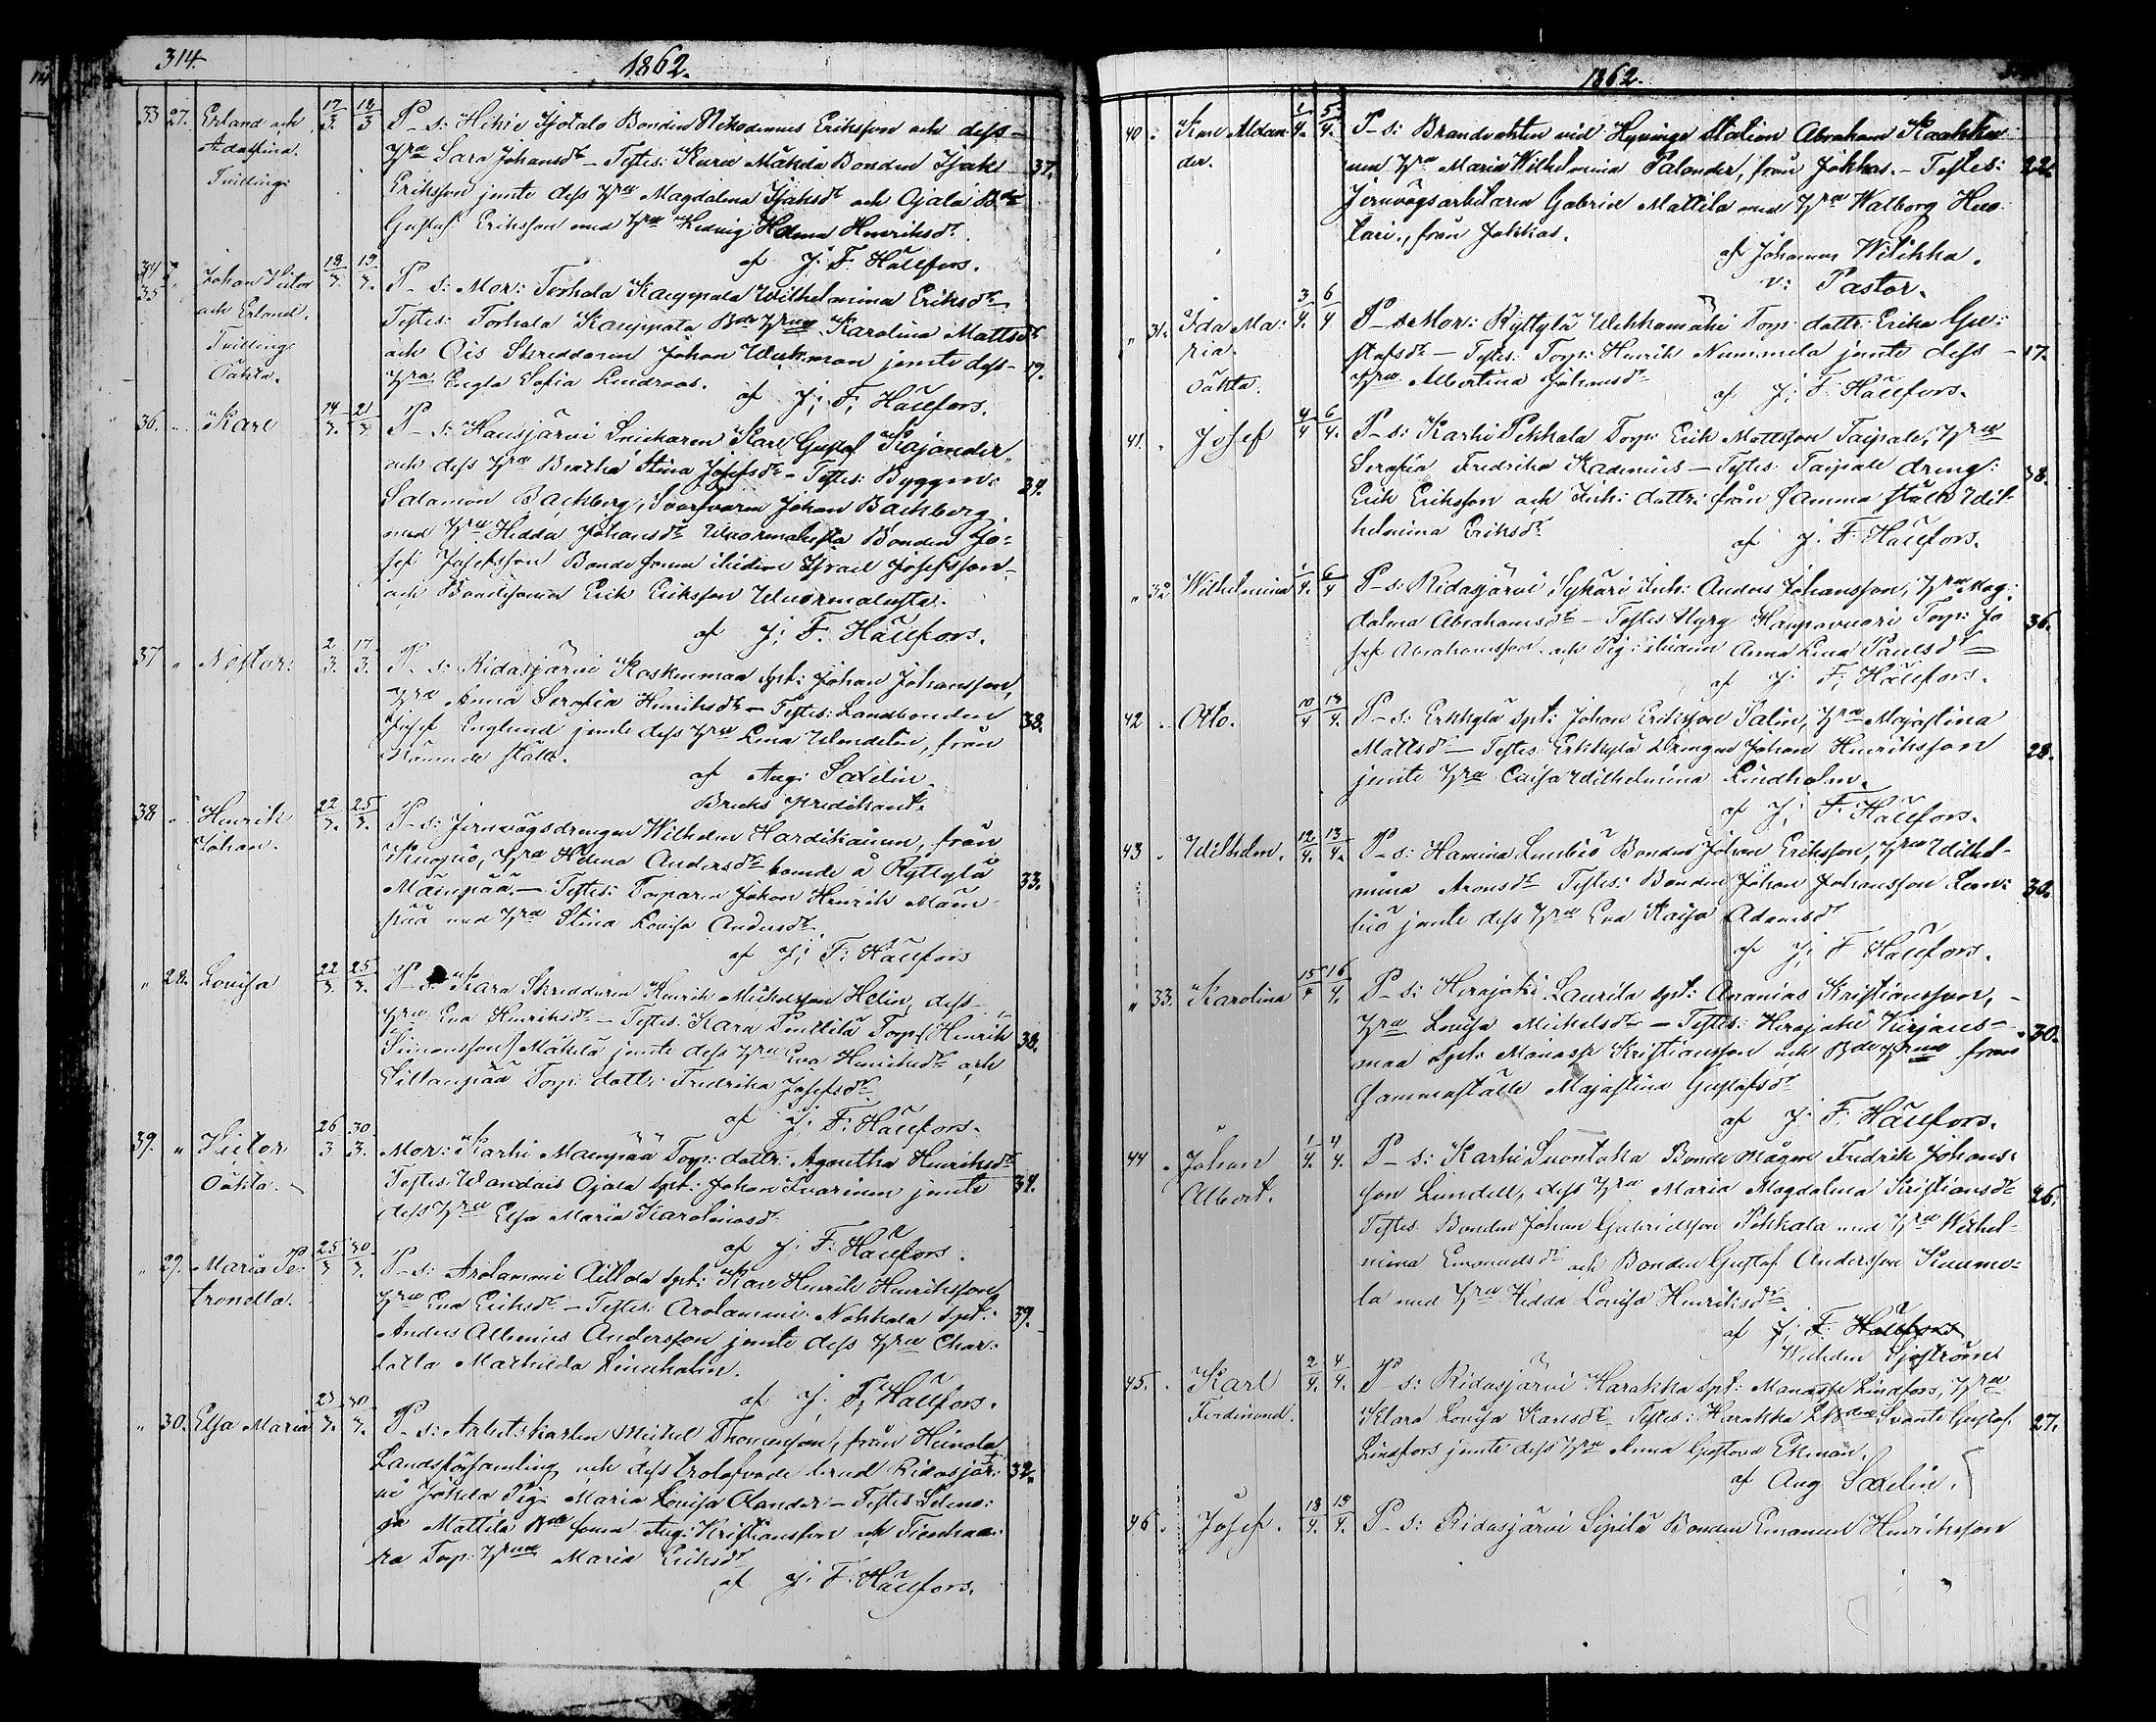 314.
1862.
33 27. Erland och 17/3. 18/3 P-s: Hikie Isotalo Bonden Nikodemus Eriksson och dess
Adastina. Hru Sara Johansdr - Testes: Kara Mäkilä Bonden Isak 37.
Tvillingar Eriksson jemte dess Hru Magdalena Isaksdr och Ojala Bde
Gustaf Eriksson med Hru Hedvig Helena Henriksdr.
af J: F: Hällfors.
34 35 " Johan Victor 18/3. 19/3. P-s: Mor: Torhola Kauppala Wilhelmina Eriksdr
och Erland. Testes: Torhola Kauppala Bde Hru Karolina Mattsdr
Tvillingar och Ois Skreddaren Johan Wickman jemte dess 19.
Oäkta. Hru Engla Sofia Lindroos.
af J: F: Hällfors.
36. " Karl 14/3. 21/3. P-s: Hausjärvi Snickaren Karl Gustaf Kajander
och dess Hru Beatha Stina Josefsdr - Testes: Byggm: 34.
Salamon Backberg, Svarfvaren Johan Backberg
med Hru Hedda Johansdr Wuormalusta Bonden Jo-
sef Josefsson Bonde sonen Israel Josefsson
och Bondesonen Erik Eriksson Wuormalusta.
af J: F: Hällfors.
37 " Nestor: 2/3. 17/3. P-s: Ridasjärvi Koskenmaa spt: Johan Johansson,
Hru Anna Serafia Henriksdr - Testes: Landbonden 38.
Josef Englund jemte dess Hru Lena Wendelin, från
Nämnde ställe.
af Aug: Saxelin
Bruks Predikant.
38 " Henrik 22/3. 25/3. P-s: Jernvägsdrengen Wilhelm Hardikainen, från
Johan. Kuopio, Hru Helena Andersdr boende å Ryttylä 33.
Mäenpää. - Testes: Torparen Johan Henrik Mäen-
pää med Hru Stina Lovisa Andersdr
af J: F: Hällfors
" 28. Lovisa 22/3. 25/3. P-s: Kara Skreddaren Henrik Mickelsson Helin, dess
Hru Eva Henriksdr - Testes: Kara Penttilä Torp: Henrik 38.
Simonsson Mäkelä jemte dess Hru Eva Henriksdr och
Sillanpää Torp: dottr: Fredrika Josefsdr
af J: F: Hällfors.
39. " Victor 26/3 30/3. Mor: Karhi Mäenpää Torp: dottr: Agantha Henriksdr
Oäkta. Testes: Ojala spt: Johan Ivarinen jemte 34.
dess Hru Elsa Maria Karolinasdr
af J: F: Hällfors.
" 29. Maria Pe- 25/3 30/3. P-s: Arolammi Aittola spt: Karl Henrik Henriksson,
tronella. Hru Eva Eriksdr - Testes: Arolammi Nokkala spt: 39.
Anders Albinus Andersson jemte dess Hru Char-
lotta Mathilda Lineholm.
af J: F: Hällfors.
" 30. Elsa Maria 27/3. 30/3. P-s: Arbetskarlen Mickel Thomasson, från Heinola
Landsförsamling och dess trolofvade brud Ridasjär- 32.
vi Jokela Pig: Maria Lovisa Olander - Testes: Selens-
jo Mattila Bde sonen Aug: Kristiansson och Tienhaa-
ra Torp: Hru Maria Eriksdr
af J: F: Hällfors.
1862.
40 " Karl Alexan- 2/4. 5/4. P-s: Brandvakten vid Hyvinge Station Abraham Kaakkin
der. med Hru Maria Wilhelmina Palander, från Jokkas. - Testes: 22.
Jernvägsarbetaren Gabriel Mattila med Hru Walborg Huo-
tari, från Jokkas.
af Johannes Wilikka.
v: Pastor.
" 31. Ida Ma- 3/4. 6/4 P-s: Mor: Ryttylä Wehkamäki Torp: dottr: Erika Gu-
ria. stafsdr - Testes: Torp: Henrik Nummela jemte dess 17.
oäkta. Hru Albertina Johansdr
af J: F: Hällfors.
41. " Josef 4/4 6/4. P-s: Karhi Pekkala Torp: Erik Mattsson Taipale, Hru
Serafia Fredrika Kadenius - Testes: Taipale dreng: 38.
Erik Eriksson och Inh: dottr: från samma ställe Wil-
helmina Eriksdr
af J: F: Hällfors.
" 32 Wilhelmina 1/4. 6/4 P-s: Ridasjärvi Sykäri Inh: Anders Johansson, Hru Mag-
dalena Abrahamsdr - Testes: Haapavuori Torp: Jo- 36.
sef Abrahamsson och Pig: Anna Lena Paulsdr
af J: F: Hällfors.
42 " Otto. 10/4 13/4. P-s: Erkkylä spt: Johan Eriksson Salin, Hru Majastina
Mattsdr - Testes: Erkkylä Drengen Johan Henriksson 28.
jemte Hru Caisa Wilhelmina Lindholm.
af J: F: Hällfors.
43 " Wilhelm. 12/4. 13/4. P-s: Hamina Lembiö Bonden Johan Eriksson, Hru Wilhel-
mina Aronsdr Testes: Bonden Johan Johansson Lem- 30.
biö jemte dess Hru Eva Kaisa Adamsdr
af J: F: Hällfors.
" 33. Karolina 15/4 16/4. P-s: Herajoki Laurila spt: Ananias Kristiansson,
Hru Lovisa Mickelsdr - Testes: Herajoki Kirjaus- 30.
maa spt: Manasse Kristiansson och Bde Hru från
samma ställe Majastina Gustafsdr
af J: F: Hällfors.
44 " Johan 1/4. 4/4. P-s: Karhi Suontaka Bonde Mågen Fredrik Johans-
Albert. son Lundell, dess Hru Maria Magdalena Kristiansdr 26.
Testes: Bonden Johan Gabrielsson Pekkala med Hru Wilhel-
mina Emanuelsdr och Bonden Gustaf Andersson Kuumo-
la med Hru Hedda Lovisa Henriksdr
af J: F: Hällfors
Wilhelm Sjöström
45. " Karl 2/4. 4/4. P-s: Ridasjärvi Harakka spt: Manasse Lindfors, Hru
Ferdinand. Klara Lovisa Karlsdr Testes: Harakka Svante Gustaf 27.
Lindfors jemte dess Hru Anna Gustava Ekman.
af Aug Saxelin.
46. " Josef. 18/4. 19/4. P-s: Ridasjärvi Sipilä Bonden Emanuel Henriksson